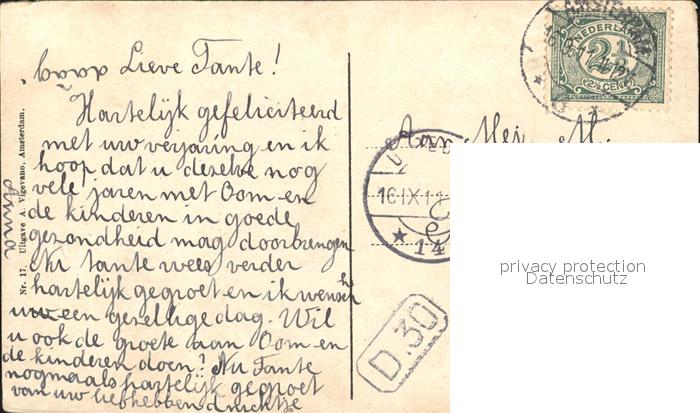 Lieve Tante!
Hartelijk gefeliciteerd
met uw verjaring en ik
hoop dat u dezelve nog
vele jaren met Oom en
de kinderen in goede
gezondheid mag doorbrengen
Nu tante wees verder
hartelijk gegroet en ik wensch
u een gezellige dag. Wil
u ook de groete aan Oom en
de kinderen doen? Nu Tante
nogmaals hartelijk gegroet
van uw liefhebbend nichtje
Anna
Nr. 17. Uitgave A. Vigevano, Amsterdam.
Aan Mej. M.
AMSTERDAM
NEDERLAND
2½
2½ CENT
16 IX 1
14
D.30
privacy protection
Datenschutz